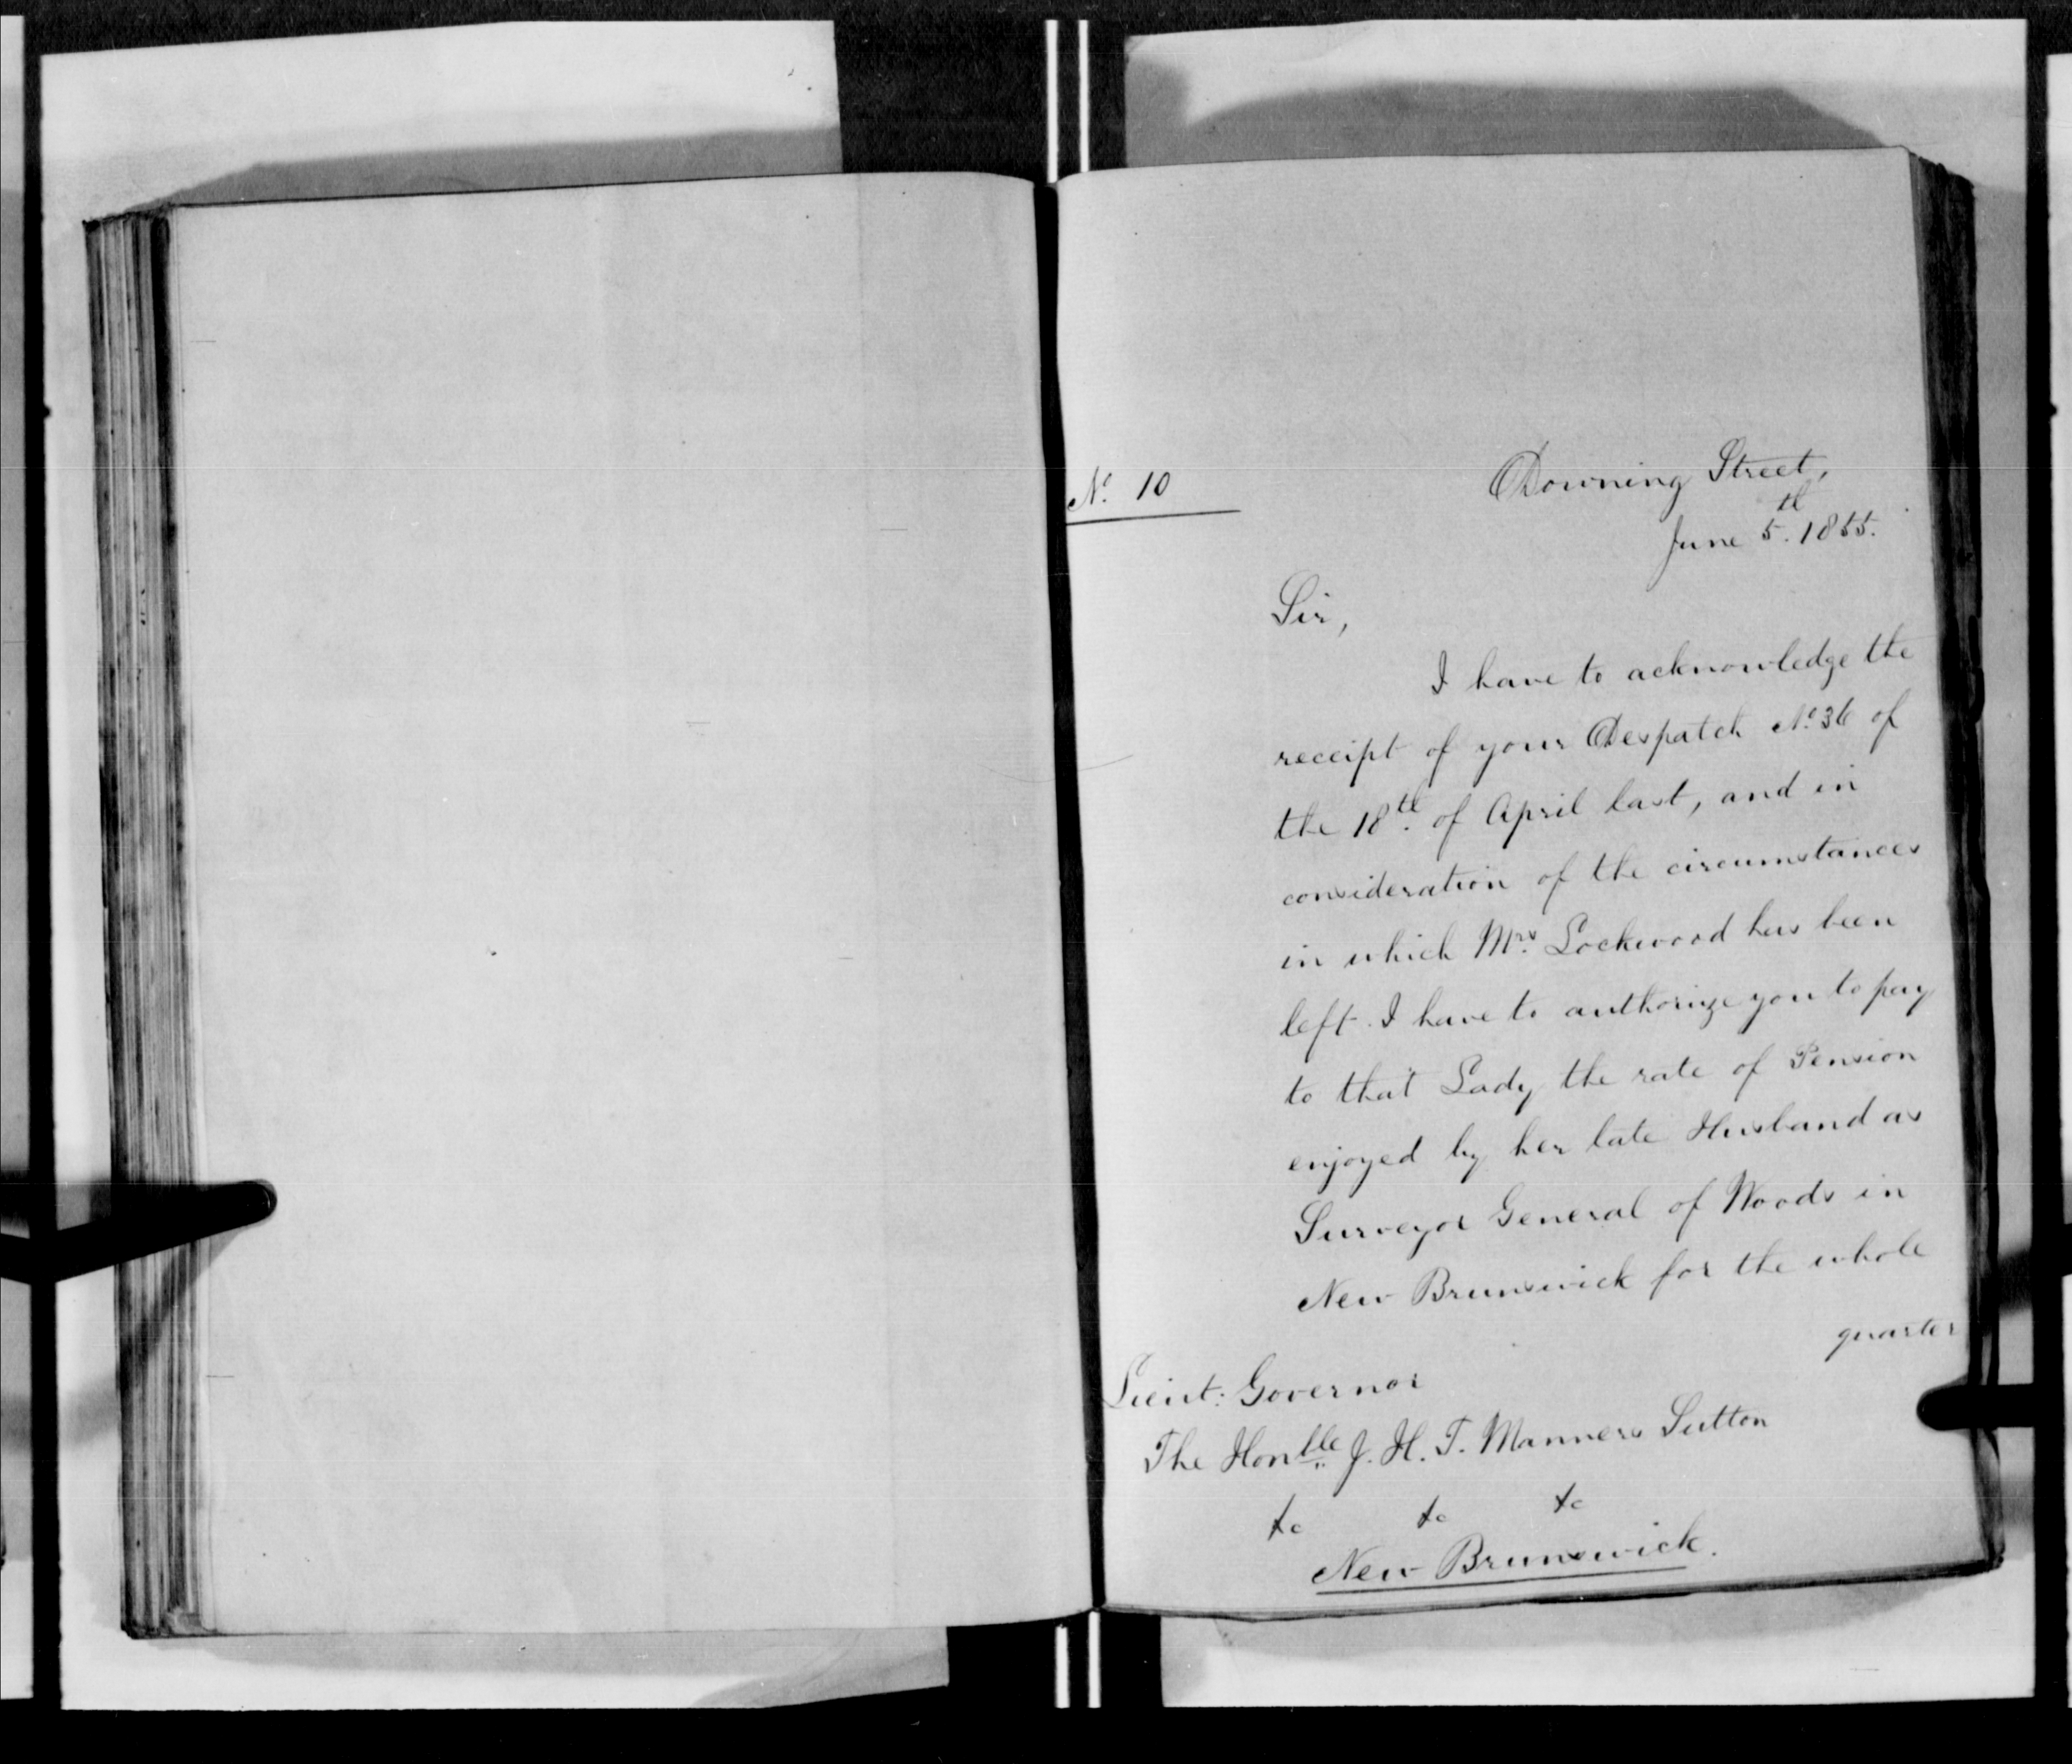 No. 10
Downing Street,
June 5th. 1855.
Sir,
I have to acknowledge the
receipt of your Despatch No. 36 of
the 18th. of April last, and in
consideration of the circumstances
in which Mrs. Lockwood has been
left. I have to authorize you to pay
to that Lady the rate of Pension
enjoyed by her late Husband as
Surveyor General of Woods in
New Brunswick for the whole
quarter
Lieut: Governor
The Honble. J. H. T. Manners Sutton
&c &c &c
New Brunswick.